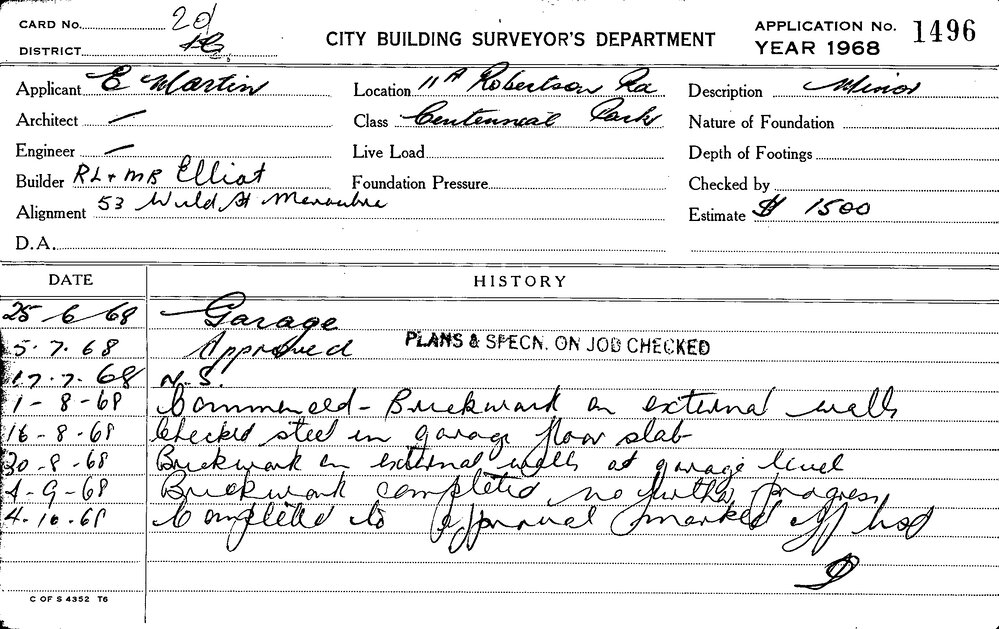 CARD No. 20/
DISTRICT
CITY BUILDING SURVEYOR'S DEPARTMENT
APPLICATION No. 1496
YEAR 1968
Applicant E Martin
Location 11A Robertson Rd
Description Minor
Architect —
Class Centennial Park
Nature of Foundation
Engineer —
Live Load
Depth of Footings
Builder RL + MB Elliot
Foundation Pressure
Checked by
Alignment 53 Wild St Maroubra
Estimate $ 1500
D.A.
DATE HISTORY
25-6-68 Garage
5.7.68 Approved PLANS & SPECN. ON JOB CHECKED
17.7.68 N.S.
1-8-68 Commenced - Brickwork on external walls
16-8-68 Checked steel in garage floor slab
30-8-68 Brickwork on external walls at garage level
4-9-68 Brickwork completed no further progress
4.10.68 Completed to approval marked off
C OF S 4352 T6